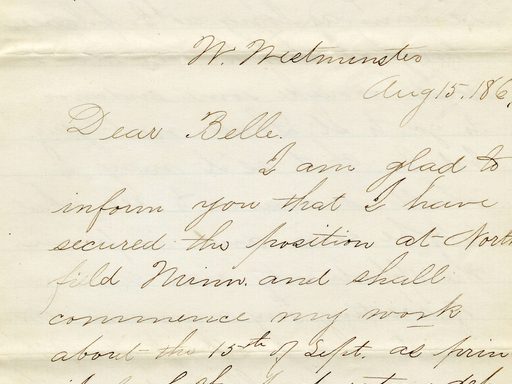 W. Westminster
Aug 15, 186
Dear Belle.
I am glad to
inform you that I have
secured the position at North
field Minn. and shall
commence my work
about the 15th of Sept. as prin